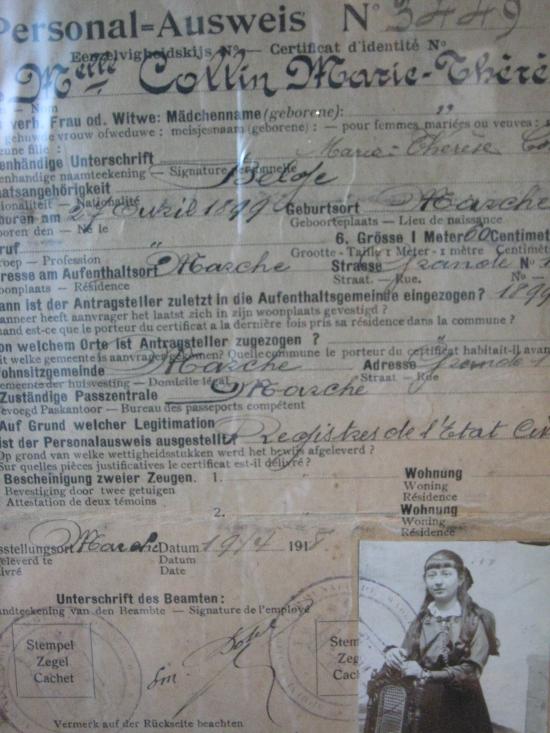 Personal=Ausweis Nº 3449
Eenzelvigheidskijs Nº — Certificat d'identité Nº
Melle Collin Marie-Thérè
— Nom
verh. Frau od. Witwe: Mädchenname (geborene): "
gehuwde vrouw ofweduwe: meisjesnaam (geborene): — pour femmes mariées ou veuves:
eune fille: Marie-Thérèse Co
enhändige Unterschrift
enhandige naamteekening — Signature personnelle
aatsangehörigkeit Belge
ionaliteit — Nationalité
boren am 27 Avril 1899 Geburtsort Marche
oren den — Né le Geboorteplaats — Lieu de naissance
ruf " 6. Grösse 1 Meter 60 Centimet
roep — Profession Grootte - Taille 1 Meter - 1 mètre Centimèt
resse am Aufenthaltsort Marche Strasse Grande Nº
oonplaats — Résidence Straat. — Rue. Nº —
ann ist der Antragsteller zuletzt in die Aufenthaltsgemeinde eingezogen? 1899
anneer heeft aanvrager het laatst zich in zijn woonplaats gevestigd?
and est-ce que le porteur du certificat a la dernière fois pris sa résidence dans la commune?
on welchem Orte ist Antragsteller zugezogen? "
it welke gemeente is aanvrager gekomen? Quelle commune le porteur du certificat habitait-il avan
ohnsitzgemeinde Marche Adresse Grande
emeente der huisvesting — Domicile légal Straat — Rue
Zuständige Passzentrale Marche
evoegd Paskantoor — Bureau des passeports compétent
Auf Grund welcher Legitimation
ist der Personalausweis ausgestellt Registres de l'Etat Civ
Op grond van welke wettigheidsstukken werd het bewijs afgeleverd?
Sur quelles pièces justificatives le certificat est-il délivré?
Bescheinigung zweier Zeugen. 1. " Wohnung
Bevestiging door twee getuigen Woning
Attestation de deux témoins Résidence
2. " Wohnung
Woning
Résidence
sstellungsort Marche Datum 19/4 1918
geleverd te Datum
livré Date
Unterschrift des Beamten:
ndteekening van den Beambte — Signature de l'employé
Stempel
Zegel
Cachet
Stem
Zeg
Cac
Vermerk auf der Rückseite beachten